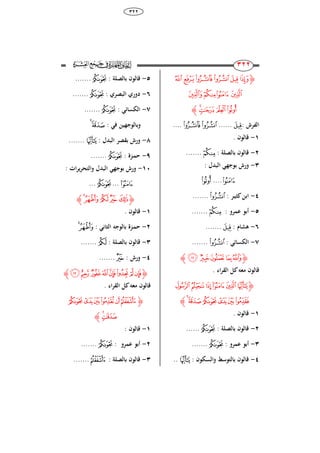 ٣٢٢
﴿ وَإِذَا قِيلَ ٱنشُزُوا۟ فَٱنشُزُوا۟ يَرْفَعِ ٱللَّهُ
ٱلَّذِينَ ءَامَنُوا۟ مِنكُمْ وَٱلَّذِينَ
أُوتُوا۟ ٱلْعِلْمَ دَرَجَـٰتٍ ﴾
الفرش : قِيلَ ...... ٱنشُزُوا۟ فَٱنشُزُوا۟ ....
١- قالون .
٢- قالون بالصلة : مِنكُمْ .......
٣- ورش بوجهي البدل :
ءَامَنُوا۟ .... أُوتُوا۟
٤- ابن كثير : ٱنشُزُوا۟ .......
٥- أبو عمرو : مِنكُمْ .......
٦- هشام : قِيلَ .......
٧- الكسائي : ٱنشُزُوا۟ .......
﴿ وَٱللَّهُ بِمَا تَعْمَلُونَ خَبِيرٌ ﴾
قالون معه كل القراء .
﴿ يَـٰٓأَيُّهَا ٱلَّذِينَ ءَامَنُوٓا۟ إِذَا نَـٰجَيْتُمُ ٱلرَّسُولَ
فَقَدِّمُوا۟ بَيْنَ يَدَىْ نَجْوَىٰكُمْ صَدَقَةً ﴾
١- قالون .
٢- قالون بالصلة : نَجْوَىٰكُمْ ......
٣- أبو عمرو : نَجْوَىٰكُمْ .......
٤- قالون بالتوسط والسكون : يَـٰٓأَيُّهَا ..
٥- قالون بالصلة : نَجْوَىٰكُمْ .......
٦- دوري البصري : نَجْوَىٰكُمْ .......
٧- الكسائي : نَجْوَىٰكُمْ .......
وبالوجهين في : صَدَقَةً
٨- ورش بقصر البدل : يَـٰٓأَيُّهَا .......
٩- حمزة : نَجْوَىٰكُمْ .......
١٠- ورش بوجهي البدل والتحريرات :
ءَامَنُوٓا۟ ... نَجْوَىٰكُمْ ...
﴿ ذَٰلِكَ خَيْرٌ لَّكُمْ وَأَطْهَرُ ﴾
١- قالون .
٢- حمزة بالوجه الثاني : وَأَطْهَرُ
٣- قالون بالصلة : لَّكُمْ .......
٤- ورش : خَيْرٌ .......
﴿ فَإِن لَّمْ تَجِدُوا۟ فَإِنَّ ٱللَّهَ غَفُورٌ رَّحِيمٌ ﴾
قالون معه كل القراء .
﴿ ءَأَشْفَقْتُمْ أَن تُقَدِّمُوا۟ بَيْنَ يَدَىْ نَجْوَىٰكُمْ
صَدَقَـٰتٍ ﴾
١- قالون :
٢- أبو عمرو : نَجْوَىٰكُمْ .......
٣- قالون بالصلة : ءَأَشْفَقْتُمْ .......